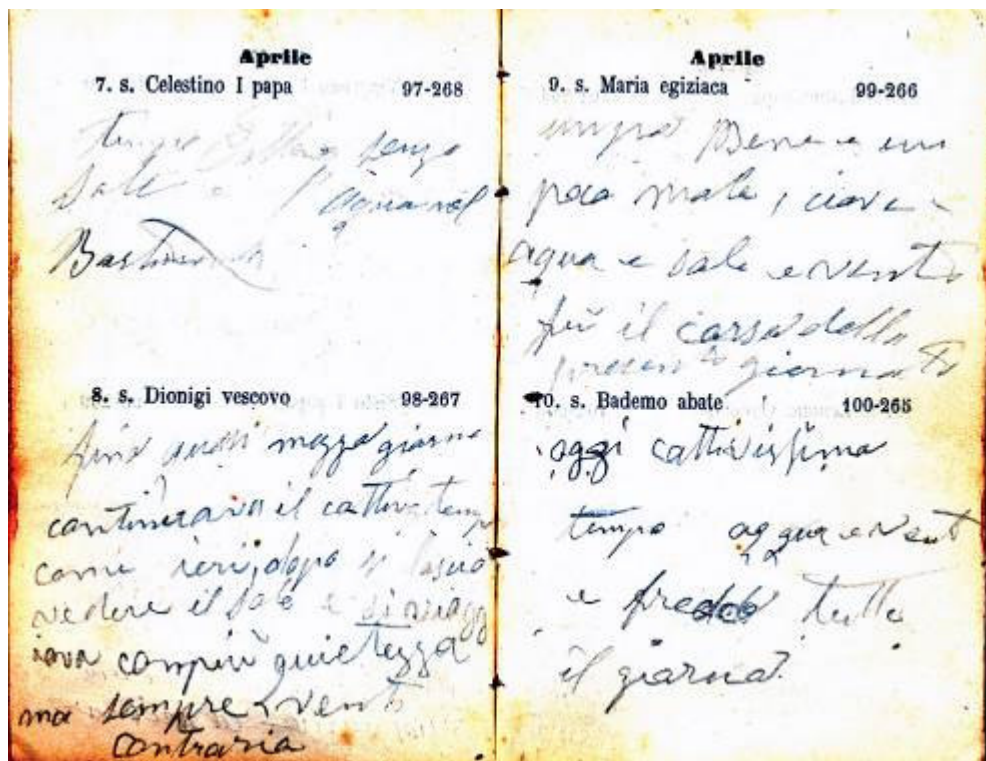 Aprile
7. s. Celestino I papa 97-268
tempo senza
sale e l'aqua nel
8. s. Dionigi vescovo 98-267
fino quasi mezza giorno
continuava il cattivo tempo
come ieri, dopo si lascio
vedere il sole e si viagg
iava compiù quietezza
ma sempre vento
contraria
Aprile
9. s. Maria egiziaca 99-266
unpo Bene e un
poco male, c
aqua e sole e vento
fù il corso della
presente giornata
10. s. Bademo abate 100-265
oggi cattivissimo
tempo acqua e vento
e freddo tutto
il giorno.